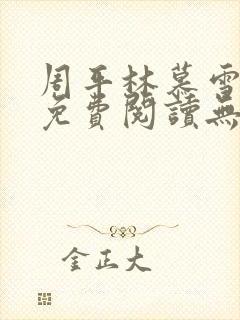 周平林慕雪
免費閱讀無
金正大